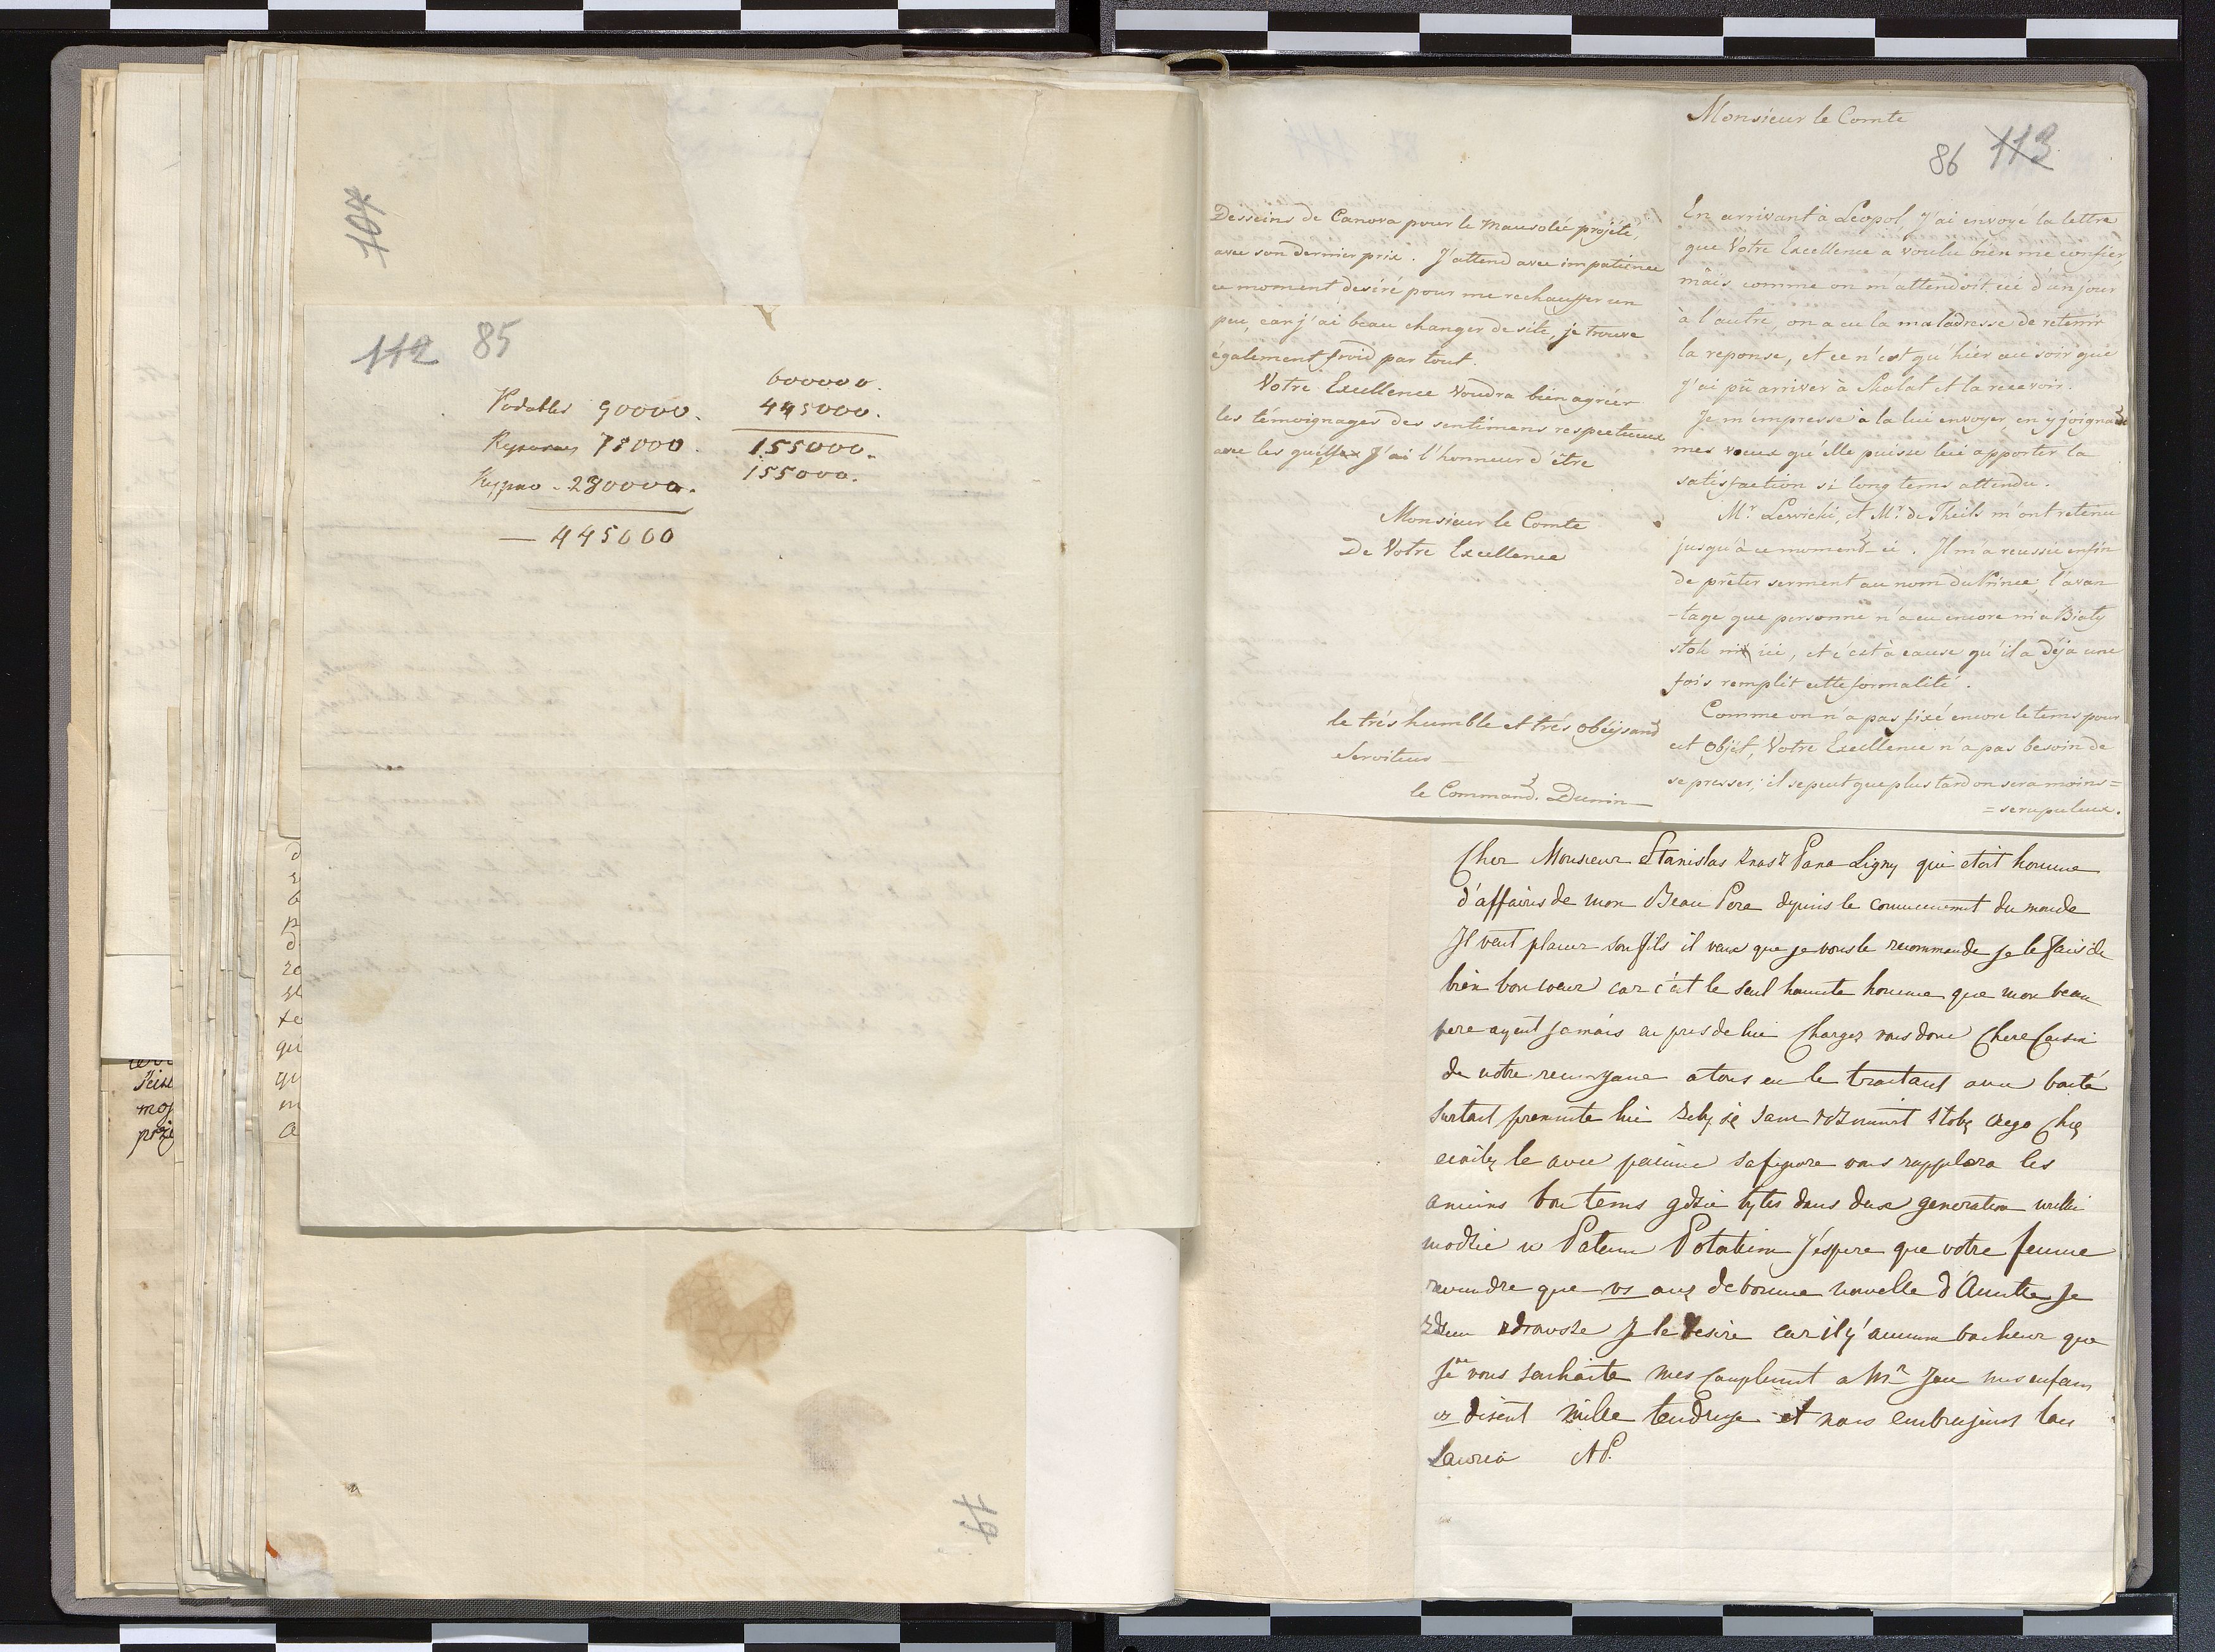 107
112 85
Vodables 90000.
75000.
280000.
— 445000
600000.
445000.
155000.
155000.
79
Monsieur le Comte
86 113
En arrivant à Leopol, J'ai envoyé la lettre
que Votre Excellence a voulu bien me confier,
mais comme on m'attendoit ici d'un jour
à l'autre, on a eu la maladresse de retenir
la reponse, et ce n'est qu'hier au soir que
J'ai pû arriver à Skalat et la recevoir.
Je m'empresse à la lui envoyer, en y joignand
mes voeux qu'elle puisse lui apporter la
satisfaction si long tems attendu.
Mr. Lewicki, et Mr. de Theils m'ont retenu
jusqu'à ce momend-ci. Il m'a reussie enfin
de prêter serment au nom du Prince, l'avan
-tage que personne n'a eu encore ni a Biały
stok ni ici, et c'est à cause qu'il a déja une
fois remplit cette formalité.
Comme on n'a pas fixé encore le tems pour
cet Objet, Votre Excellence n'a pas besoin de
se presser; il se peut que plus tard on sera moins=
=scrupuleux.
Desseins de Canova pour le Mausolée projété,
avec son dernier prix. J'attend avec impatience
ce moment desiré pour me rechauffer un
peu, car j'ai beau changer de site, je trouve
également froid par tout.
Votre Excellence voudra bien agréer
les témoignages des sentimens respectueux
avec les quells J'ai l'honneur d'être
Monsieur le Comte
De Votre Excellence
le très humble et très obéissand
Serviteur
le Command. Dunin
Cher Monsieur Stanislas Znasz Pana Ligny qui etoit homme
d'affaires de mon Beau Pere depuis le commencement du monde
Il veut placer son fils il veut que je vous le recommande je le fais de
bien bon coeur car c'est le seul honnete homme que mon beau
pere ayent jamais eu pres de lui Chargez vous donc Chere Cousin
de notre a tous en le traitant avec bonté
surtout lui żeby się sam czego chce
le avec sa figure vous rappelera les
anciens bon tems gdzie byles dans deux generation
w J'espere que votre femme
que vs avez de bonne nouvelle d'Anette Je
je le desire car il y'aucun bonheur que
Je ne vous souhaite mes compliment a Mr Jean mes enfans
vs disent mille tendresse et nous embrassons tous
AP.